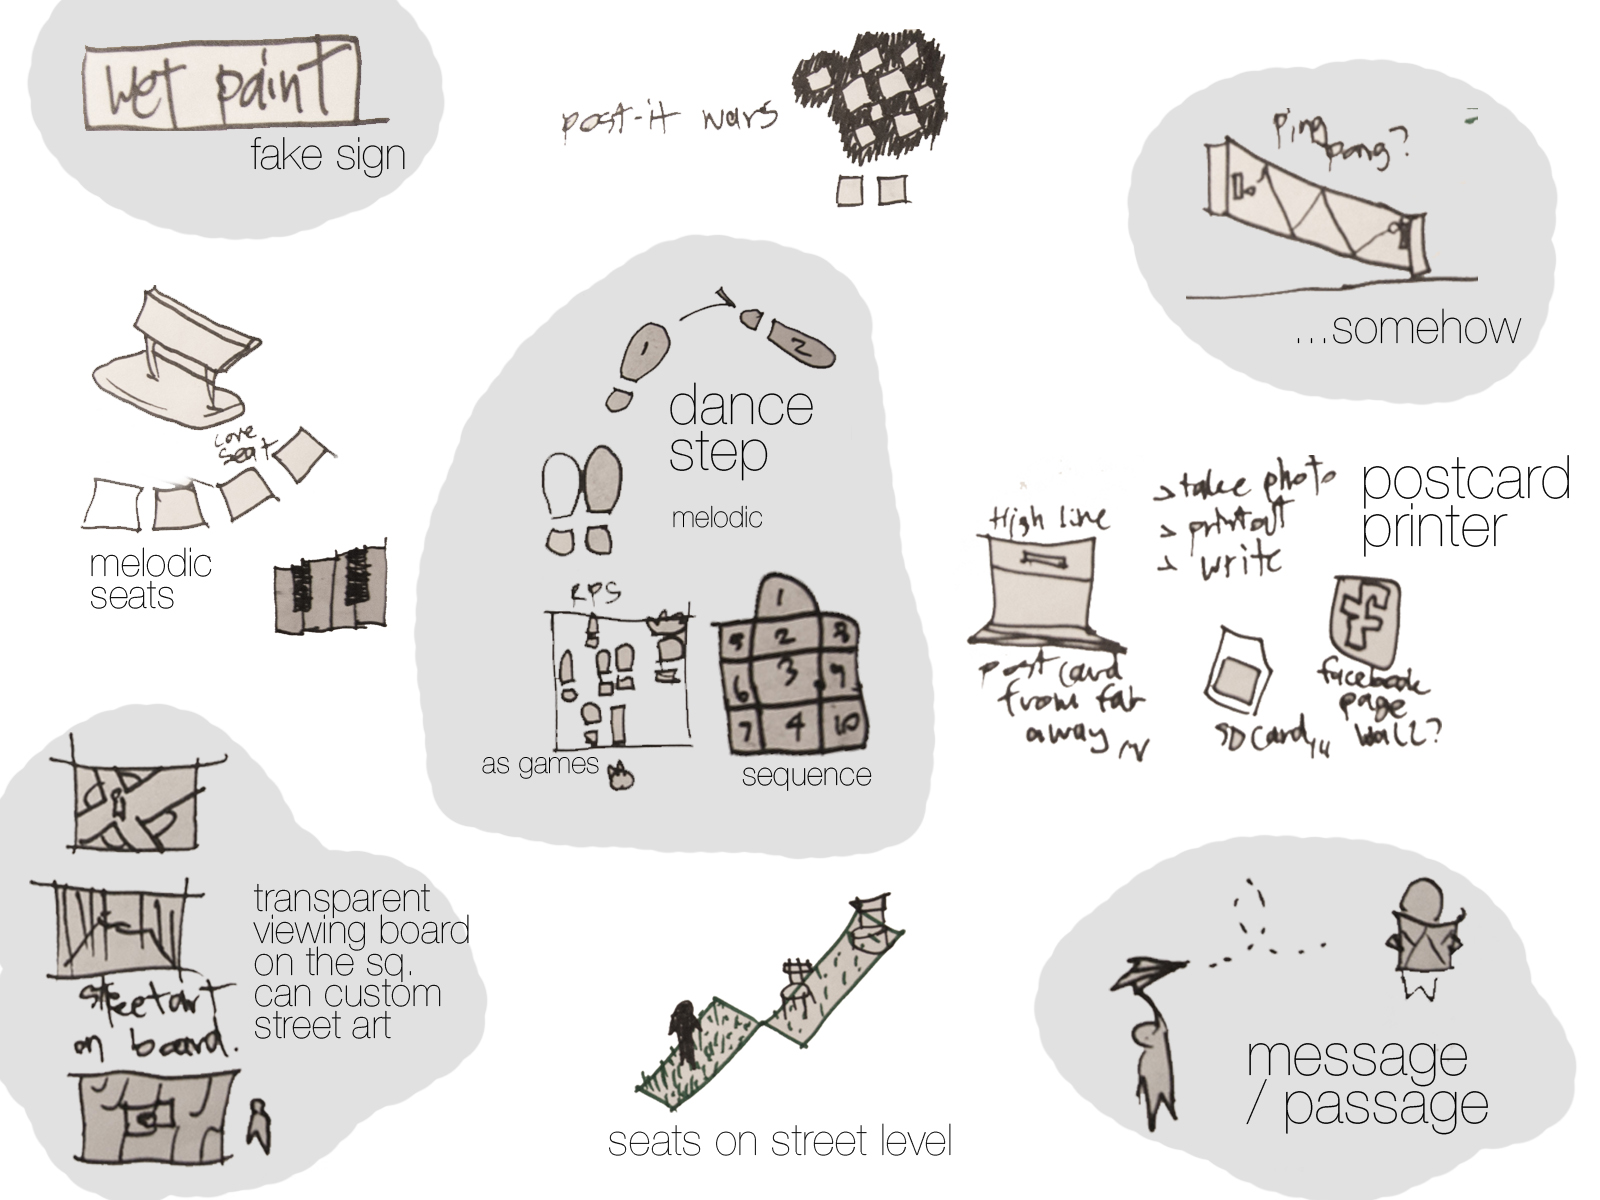 wet paint
fake sign
post-it wars
ping
pong?
...somehow
love
seat
melodic
seats
1
2
dance
step
melodic
RPS
as games
1
5 2 8
6 3 9
7 4 10
sequence
High line
post card
from far
away
> take photo
> printout
> write
postcard
printer
SD card
facebook
page
wall?
street art
on board.
transparent
viewing board
on the sq.
can custom
street art
seats on street level
message
/ passage